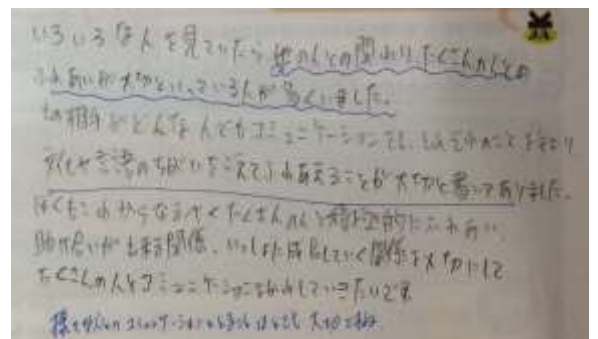 いろいろな人を見ていたら他の人との関わり、たくさんの人との
ふれあいが大切といっている人が多くいました。
相手がどんな人でもコミュニケーション
言語のちがいをこえてふれあえることが大切と書いてありました。
ぼくもこれからなるべくたくさんの人と積極的にふれあい、
助け合いが出来る関係、いっしょに成長していく関係を大切にして
たくさんの人とコミュニケーションを していきたいです
コミュニケーション 大切ですね